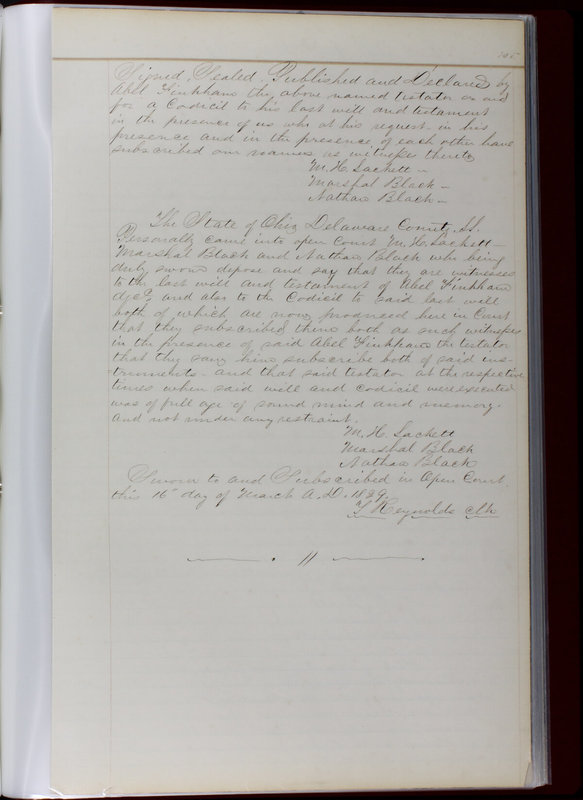 105
Signed, Sealed, Published and Declared by
Abel Finkham the above named testator as and
for a Codicil to his last will and testament
in the presence of us who at his request in his
presence and in the presence of each other have
subscribed our names as witness thereto
M. H. Sackett –
Marshal Black –
Nathan Black –
The State of Ohio Delaware County SS.
Personally came into open Court M. H. Sackett –
Marshal Black and Nathan Black who being
duly sworn depose and say that they are witnesses
to the last will and testament of Abel Finkham
decd. and also to the Codicil to said last will
both of which are now produced here in Court
that they subscribed them both as such witnesses
in the presence of said Abel Finkham the testator
that they saw him subscribe both of said ins-
truments – and that said testator at the respective
times when said will and codicil were executed
was of full age of sound mind and memory.
and not under any restraint.
M. H. Sackett
Marshal Black
Nathan Black
Sworn to and Subscribed in Open Court.
this 16 day of March A.D. 1829.
T Reynolds clk